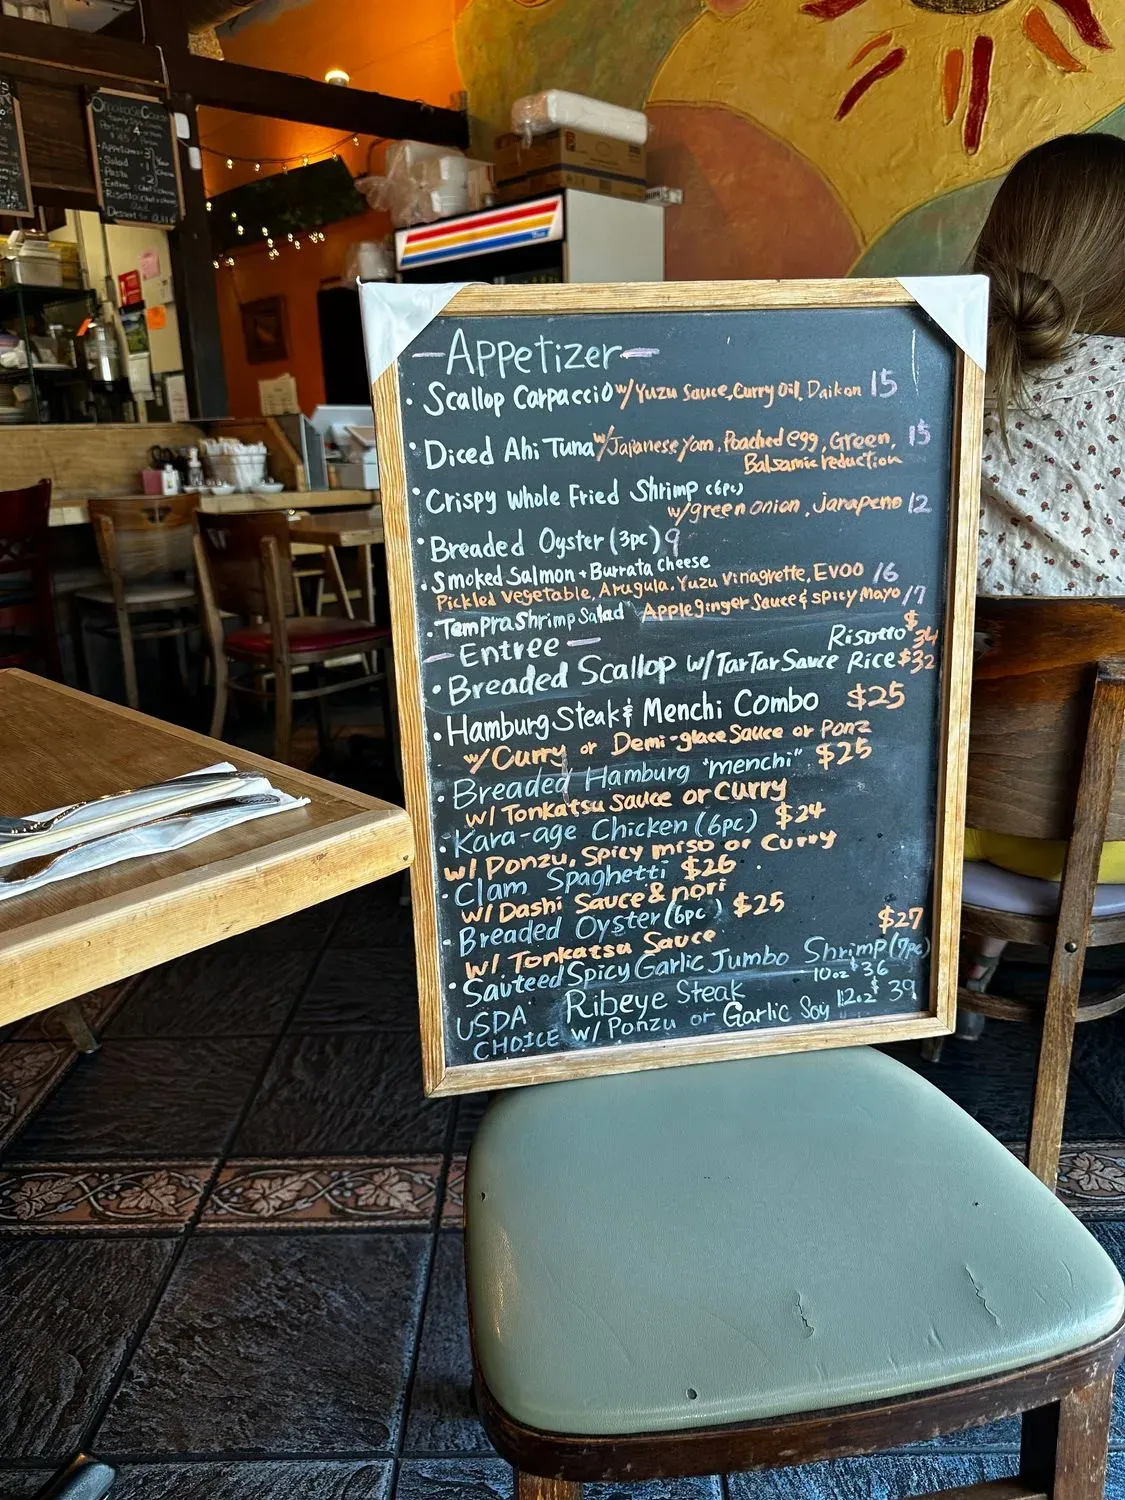 Omakase Course
4
• Appetizer
• Salad
• Pasta
• Entree
Dessert
—Appetizer—
• Scallop Carpaccio w/Yuzu Sauce, Curry Oil, Daikon 15
• Diced Ahi Tuna w/Japanese Yam, Poached egg, Green, 15
Balsamic reduction
• Crispy Whole Fried Shrimp (6pc)
w/green onion, Jarapeno 12
• Breaded Oyster (3pc) 9
• Smoked Salmon + Burrata cheese
Pickled Vegetable, Arugula, Yuzu Vinagrette, EVOO 16
• Tempra Shrimp Salad Apple ginger Sauce & spicy Mayo 17
—Entree—
Risotto $34
• Breaded Scallop w/TarTar Sauce Rice $32
• Hamburg Steak & Menchi Combo $25
w/Curry or Demi-glace Sauce or Ponz
• Breaded Hamburg "menchi" $25
w/ Tonkatsu Sauce or Curry
• Kara-age Chicken (6pc) $24
w/ Ponzu, Spicy miso or Curry
• Clam Spaghetti $26
w/ Dashi Sauce & nori
• Breaded Oyster (6pc) $25
w/ Tonkatsu Sauce
$27
• Sauteed Spicy Garlic Jumbo Shrimp (7pc)
10oz $36
USDA Ribeye Steak
12oz $39
CHOICE w/ Ponzu or Garlic Soy